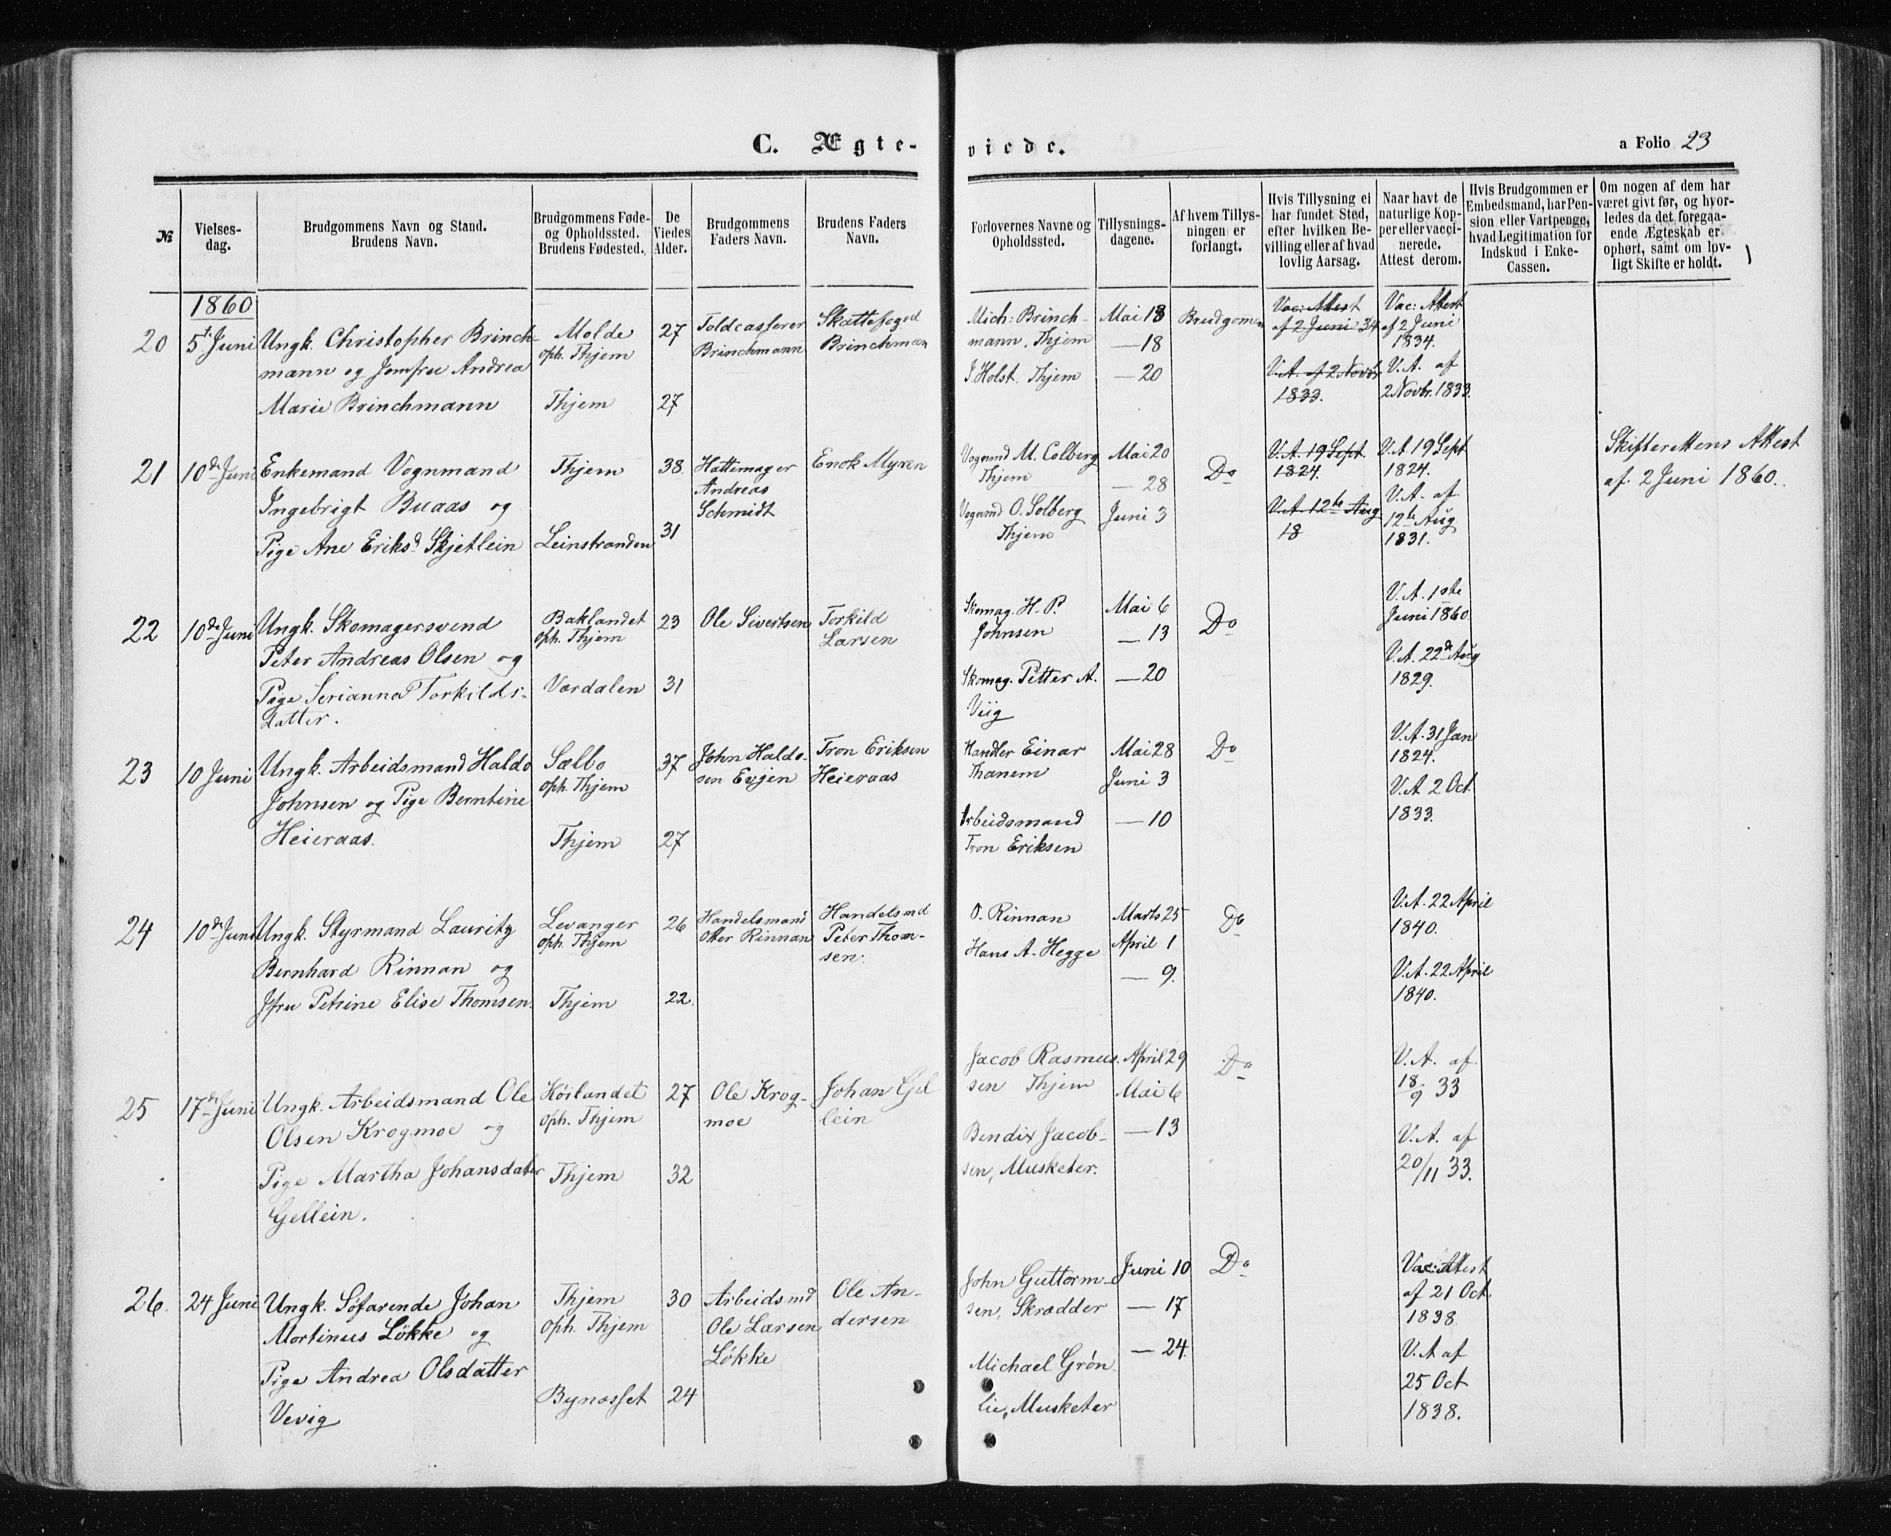 C. Ægte-
viede.
a Folio 23
№
Vielses-
dag.
Brudgommens Navn og Stand.
Brudens Navn.
Brudgommens Føde-
og Opholdssted.
Brudens Fødested.
De
Viedes
Alder.
Brudgommens
Faders Navn.
Brudens Faders
Navn.
Forlovernes Navne og
Opholdssted.
Tillysnings-
dagene.
Af hvem Tillys-
ningen er
forlangt.
Hvis Tillysning ei
har fundet Sted,
efter hvilken Be-
villing eller af hvad
lovlig Aarsag.
Naar havt de
naturlige Kop-
per eller vacci-
nerede.
Attest derom.
Hvis Brudgommen er
Embedsmand, har Pen-
sion eller Vartpenge,
hvad Legitimation for
Indskud i Enke-
Cassen.
Om nogen af dem har
været givt før, og hvor-
ledes da det foregaa-
ende Ægteskab er
ophørt, samt om lov-
ligt Skifte er holdt.
1860
20
5t Juni
Ungk. Christopher Brinch-
mann og Jomfru Andrea
Marie Brinchmann
Molde
oph. Thjem
Thjem
27
27
Toldcasserer
Brinchmann
Skattefoged
Brinchman
Mich: Brinch-
mann, Thjem
J Holst. Thjem
Mai 18
—18
—20
Brudgomen
Vac: Attest
af 2 Juni 34
V.A. af 2 Novbr
1833.
Vac: Attest
af 2 Juni
1834.
V. A. af
2 Novbr. 1833.
21
10de Juni
Enkemand Vognmand
Ingebrigt Buaas og
Pige Ane Eriksd Skjetlein
Thjem
Leinstranden
38
31
Hattemager
Andreas
Schmidt
Enok Myren
Vognmd M. Colberg
Thjem
Vognmd O. Solberg
Thjem
Mai 20
—28
Juni 3
Do
V.A. 19 Sept
1824.
V.A. 12te Aug
18
V.A 19 Sept
1824.
V.A. af
12te Aug
1831.
Skifterettens Attest
af 2 Juni 1860.
22
10de Juni
Ungk. Skomagersvend
Peter Andreas Olsen og
Pige Serianna Torkilds-
datter.
Baklandet
oph. Thjem
Værdalen
23
31
Ole Sivertsen
Torkild
Larsen
Skomag. H. P.
Johnsen
Skomag. Petter A.
Viig
Mai 6
—13
—20
Do
V.A. 1ste
Juni 1860
V.A. 22de Aug
1829.
23
10 Juni
Ungk. Arbeidsmand Haldo
Johnsen og Pige Berntine
Heieraas.
Sælbo
oph. Thjem
Thjem
37
27
John Haldo-
sen Evjen
Tron Eriksen
Heieraas
Handler Einar
Thanem
Arbeidsmand
Tron Eriksen
Mai 28
Juni 3
—10
Do
V.A. 31 Jan
1824.
V.A 2 Oct
1833.
24
10de Juni
Ungk. Styrmand Lauritz
Bernhard Rinnan og
Jfru Petrine Elise Thomsen.
Levanger
oph. Thjem
Thjem
26
22
Handelsmand
Otter Rinnan
Handelsmd
Peter Thom-
sen.
O. Rinnan
Hans A. Hegge
Marts 25
April 1
—9.
Do
V.A. 22 April
1840.
V.A. 22 April
1840.
25
17de Juni
Ungk. Arbeidsmand Ole
Olsen Krogmoe og
Pige Martha Johansdater
Gellein.
Høilandet
oph. Thjem
Thjem
27
32
Ole Krog-
moe
Johan Gel
lein
Jacob Rasmus-
sen Thjem
Bendix Jacob-
sen, Musketer.
April 29
Mai 6
—13
Do
V.A. af
18/9 33
V.A. af
20/11 33.
26.
24 Juni
Ungk. Søfarende Johan
Mortinus Løkke og
Pige Andrea Olsdatter
Vevig
Thjem
oph. Thjem
Bynæsset
30
24
Arbeidsmd
Ole Larsen
Løkke
Ole An-
dersen
John Guttorm-
sen, Skrædder
Michael Grøn
lie, Musketer
Juni 10
—17
—24
Do
Vac: Attest
af 21 Oct
1838
V.A af
25 Oct
1838.